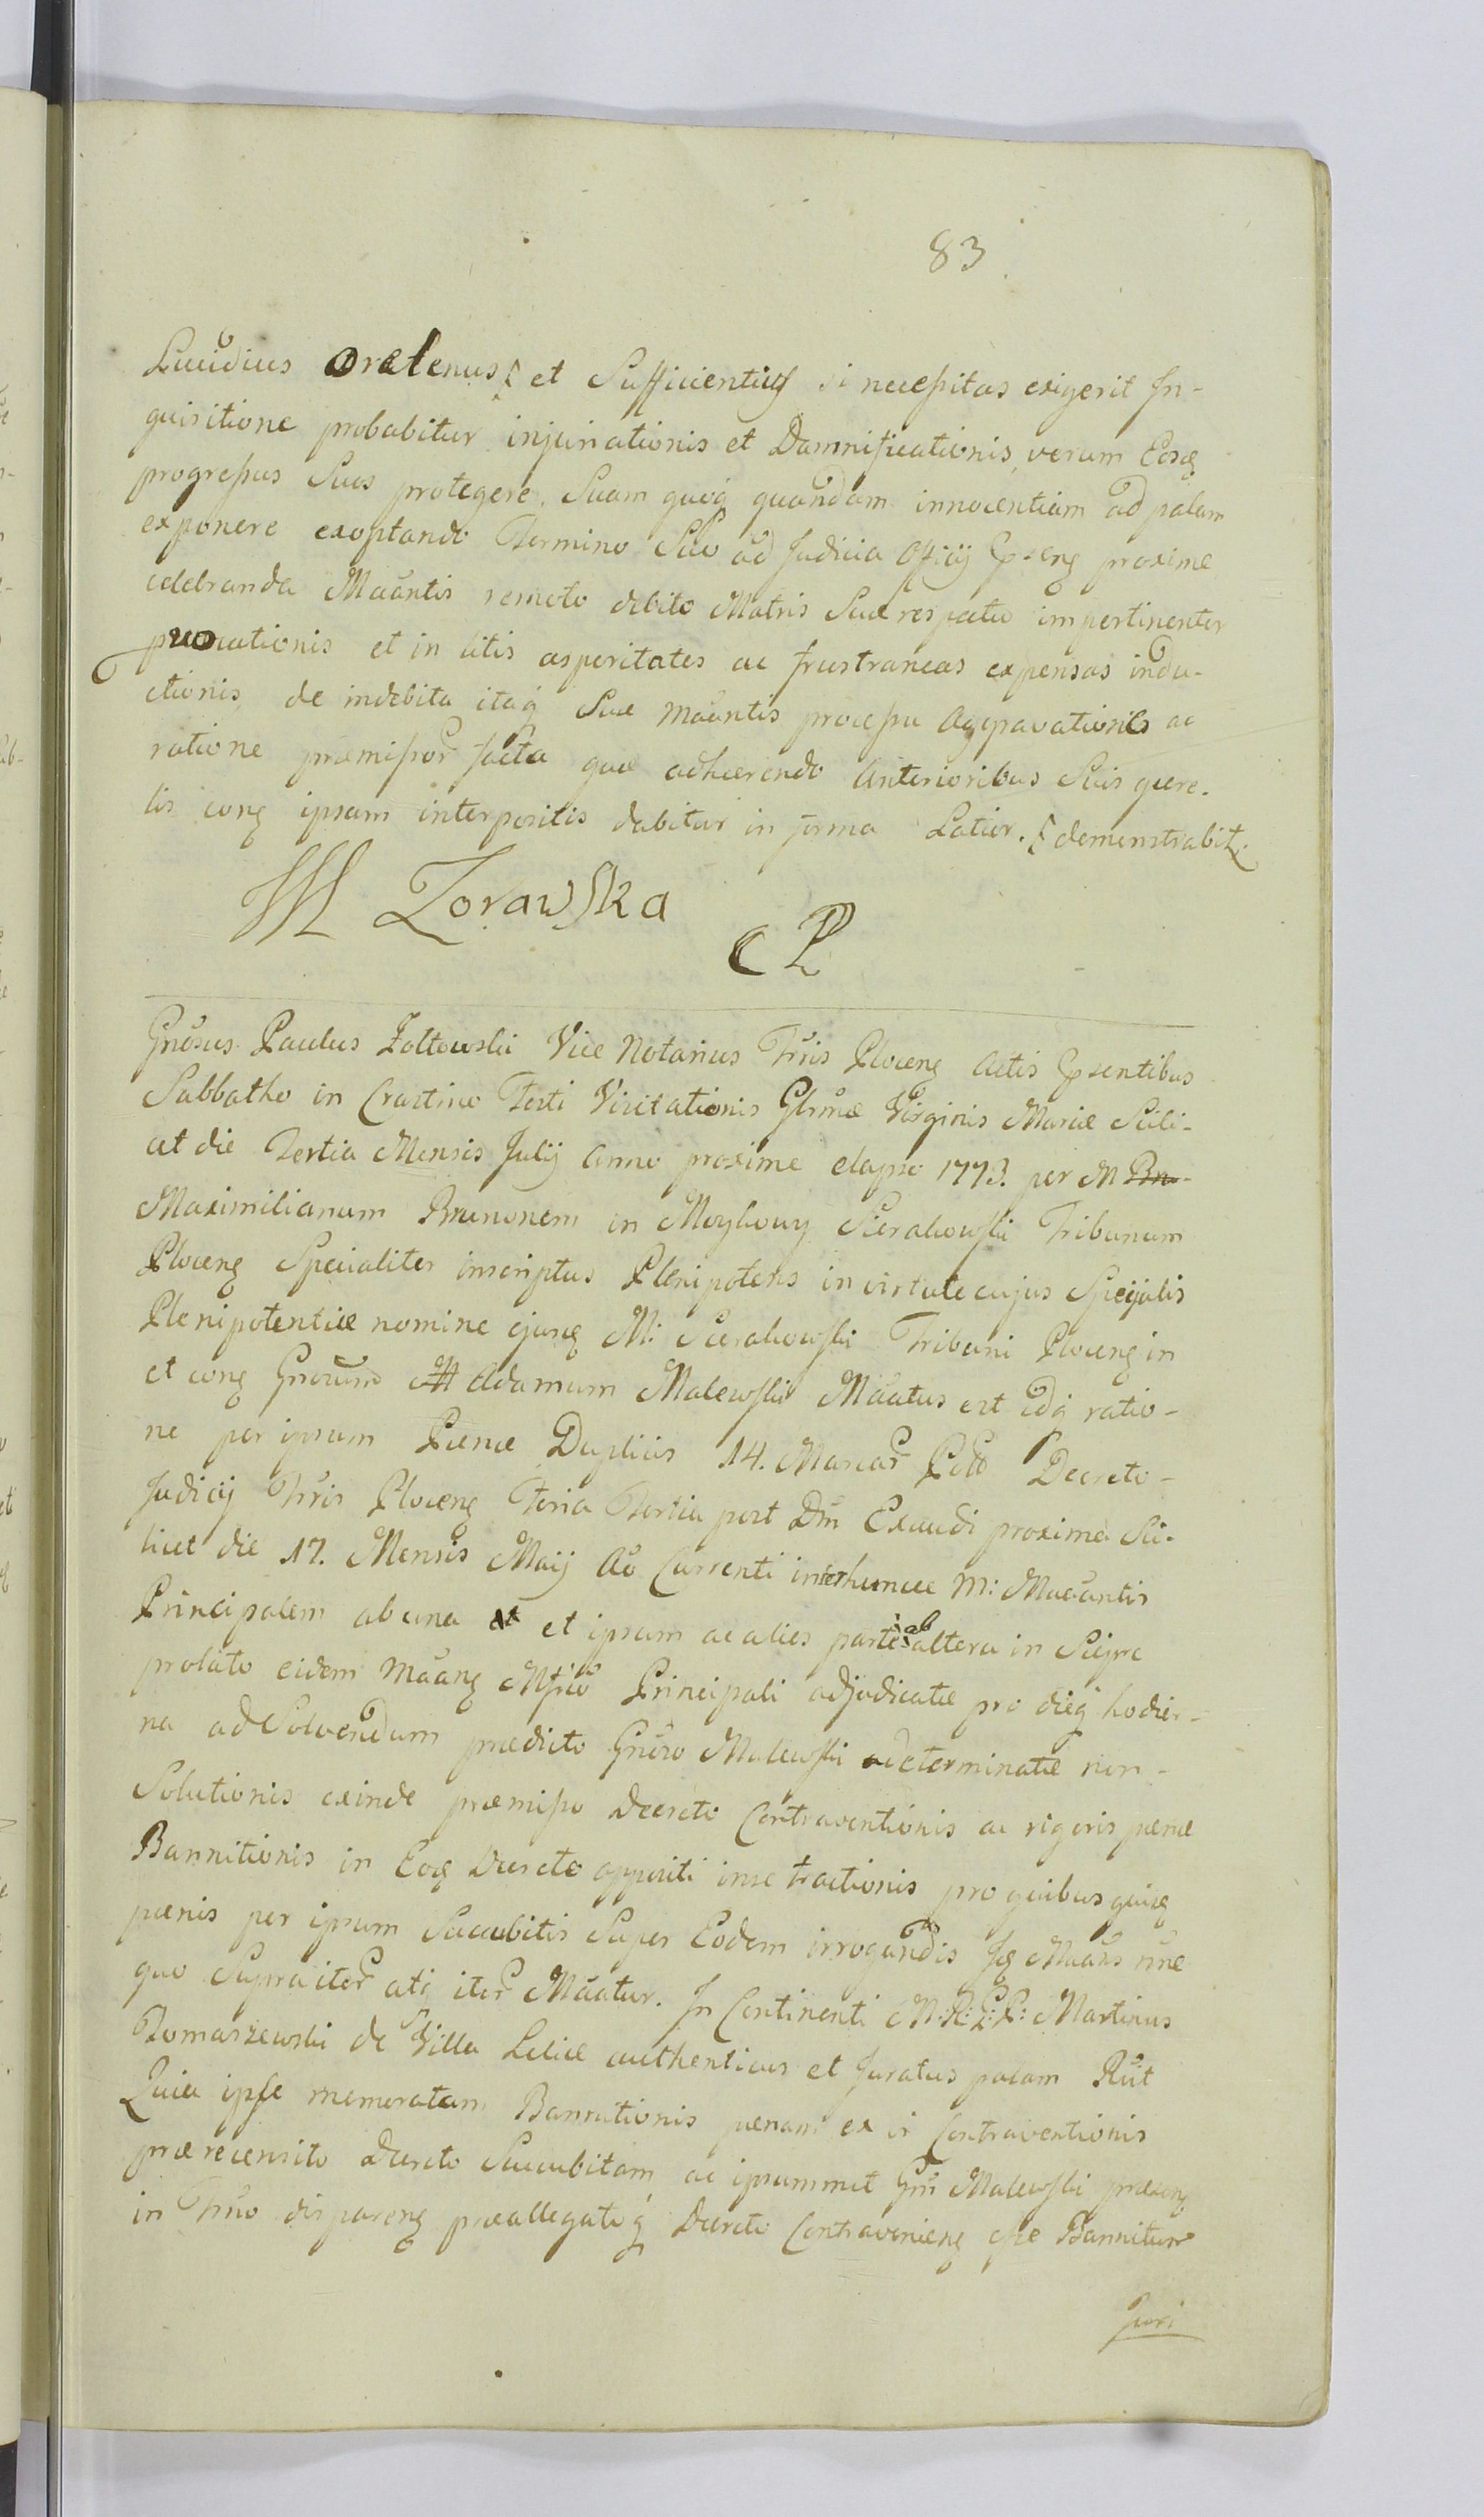 83
Lucidius oretenus et Sufficientius si necessitas exigerit In-
quisitione probabitur injuriationis et Damnificationis, verum Eosq
progressus Suos protegere. Suam quoq quandam innocentiam ad palam
exponere exoptando Termino Suo ad Judicia Officij Pseng proxime
celebranda Maantis remoto debito Matris Suae respectu impertinenter
provocationis et in litis asperitates ac frustraneas expensas indu-
ctionis, de indebita itaq Suae maantis processu Aggravationis ac
ratione praemissor facta quae adhaerendo Anterioribus Suis quere-
lis cong ipsam interpositis dabitur in forma Latior. demonstrabit
M Zorawska
CP
Gnosus Paulus Zoltowski Vice Notarius Trris Ploceng Actis Psentibus
Sabbatho in Crastino Festi Visitationis Glrmae Virginis Mariae Scili-
cet die Tertia Mensis Julij Anno proxime elapso 1773. per M Bru-
Maximilianum Brunonem in Moykowy Sierakowski Tribunum
Ploceng Specialiter inscriptus Plenipotens in virtute cujus Specijalis
Plenipotentiae nomine ejusq M: Sierakowski Tribuni Ploceng in
et cong Gnosum Adamum Malewski Maatus est idq ratio-
ne per ipsum Paenae Duplicis 14. Marcar Poll Decreto-
Judicij Trris Ploceng Feria Tertia post Dm Exaudi proxima Sci-
licet die 17. Mensis Maij Ao Currenti inter huncce M: Maantis
Principalem ab una et ipsum ac alios partes ab altera in Scipre
prolato eidem maang Mfico Principali adjudicatae pro dieq hodier-
na ad Solvendum praedicto Gnoso Malewski determinatae non-
Solutionis exinde praemisso Decreto Contraventionis ac rigoris paenae
Bannitionis in Eoq Decreto appositi inse tractionis pro quibus quisq
paenis per ipsum Succubitis Super Eodem irrogandis Iq Maans nne
quo Supra iter atq iter Maatur. In Continenti M: Martinus
Tomaszewski de Villa Lelice authenticus et Juratus palam Rlit
Quia ipse memoratam Bannitionis paenam ex vi Contraventionis
praerecensito Decreto Succubitam, ac ipsummet Gm Malewski praeseng
in Trno dispareng praeallegatoq Decreto Contravenieng esse Bannitum
Juri